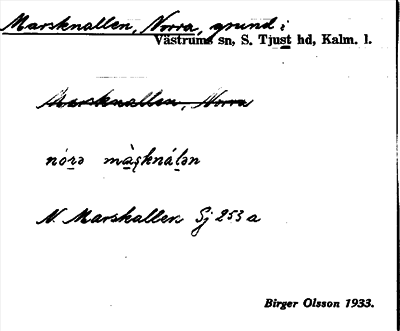 Marsknallen, Norra, grund i
Västrums sn, S. Tjust hd, Kalm. l.
Marsknallen, Norra
nórə màʂknálən
N. Marskallen Sj 253 a
Birger Olsson 1933.